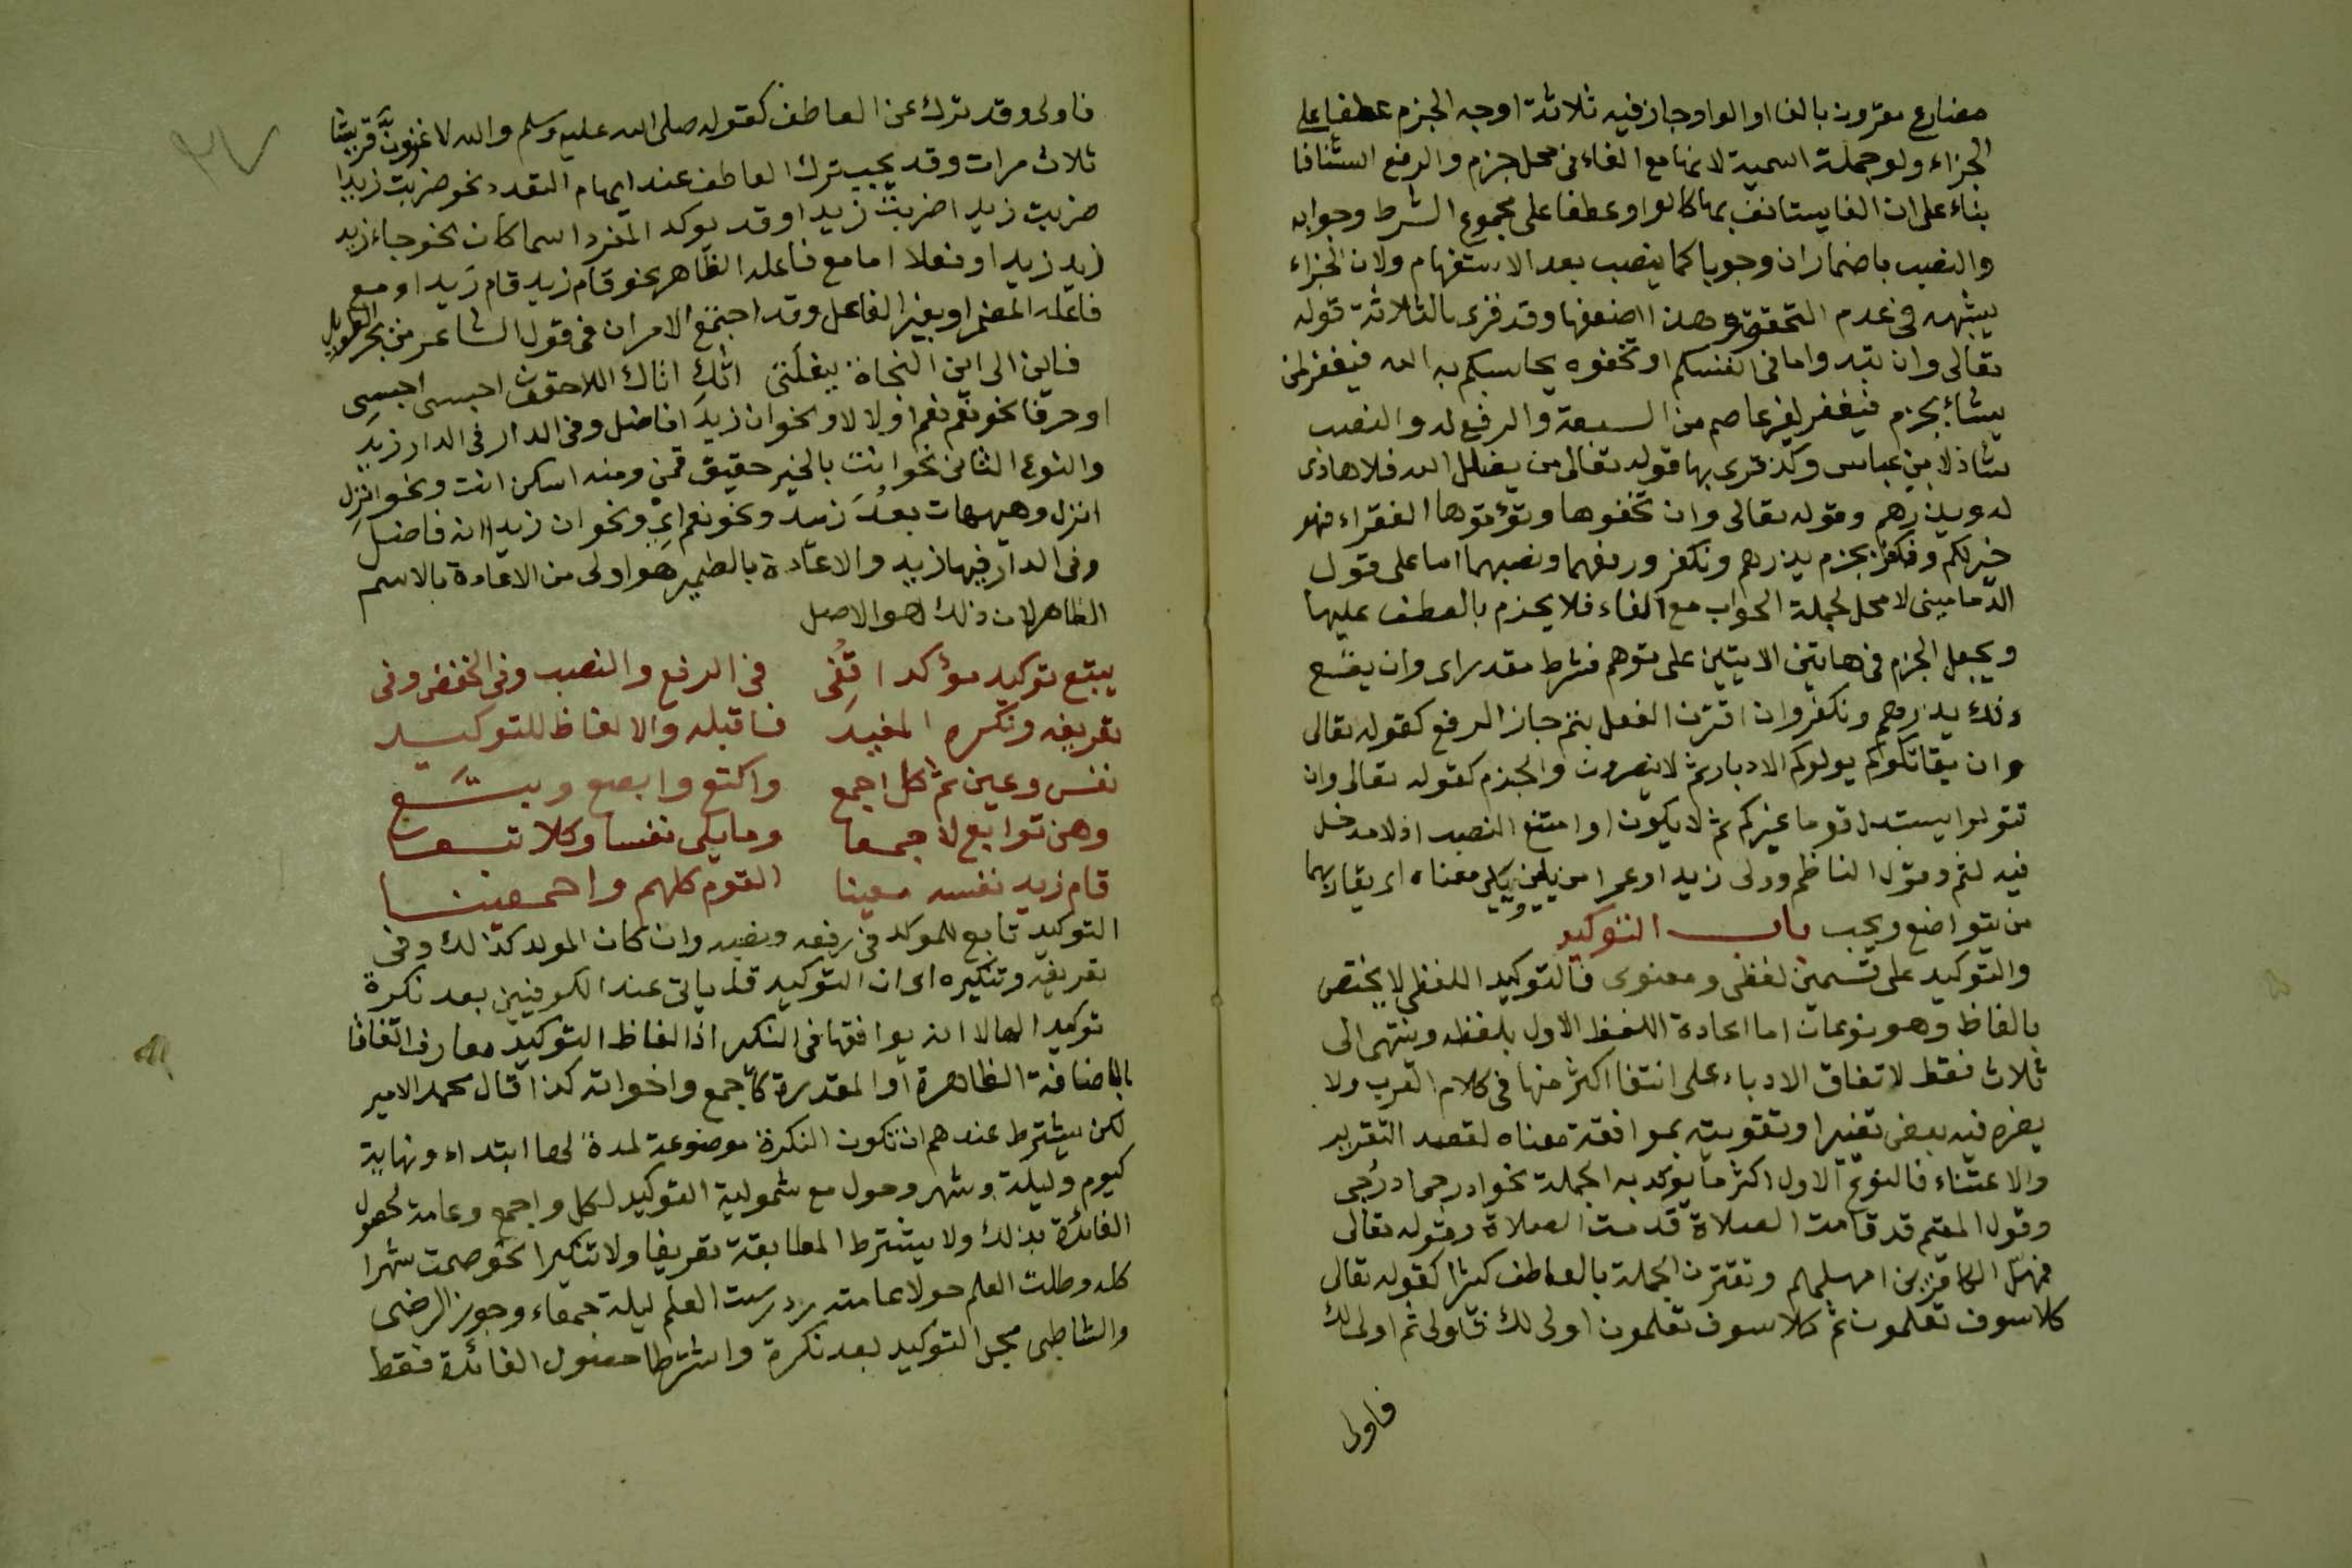 مضارع مقرون بالفا او الواو جاز فيه ثلاثة اوجه الجزم عطفا على
الجزاء ولو جملة اسمية لانها مع الفاء في محل جزم والرفع استئنافا
بناء على ان الفا يستانف بها كالواو عطفا على مجموع الشرط وجوابه
والنصب باضمار ان وجوبا كما ينصب بعد الاستفهام ولان الجزاء
يشبهه في عدم التحقق وهذا اضعفها وقد قرى بالثلاثة قوله
تعالى وان تبدوا ما في انفسكم او تخفوه يحاسبكم به الله فيغفر لمن
يشاء بجزم فيغفر لغير عاصم من السبعة والرفع له والنصب
شاذ لابن عباس وكذ قرى بها قوله تعالى من يضلل الله فلا هادى
له ويذرهم وقوله تعالى وان تخفوها وتؤتوها الفقراء فهو
خير لكم ونكفر بجزم يذرهم ونكفر ورفعهما ونصبهما اما على قول
الدمامينى لا محل لجملة الجواب مع الفاء فلا يجزم بالعطف عليها
ويجعل الجزم في هاتين الايتين على توهم شرط مقدر اى وان يقع
ذلك يذرهم ونكفر وان اقترن الفعل بثم جاز الرفع كقوله تعالى
وان يقاتلوكم يولوكم الادبار ثم لا ينصرون والجزم كقوله تعالى وان
تتولوا يستبدل قوما غيركم ثم لا يكونوا وامتنع النصب اذ لا مدخل
فيه لثم وقول الناظم ودلى زيدا وعمرا من يلين يلى معناه اى يقاربهما
من يتواضع ويجب باب التوكيد
والتوكيد على قسمين لفظى ومعنوى فالتوكيد اللفظى لا يختص
بالفاظ وهو نوعان اما اعادة اللفظ الاول بلفظه وينتهى الى
ثلاث فقط لاتفاق الادباء على انتفا اكثر منها في كلام العرب ولا
يضره فيه بعض تغير او تقويته بموافقة معناه لقصد التقرير
والاعتناء فالنوع الاول اكثر ما يؤكد به الجملة نحو ادرجى ادرجى
وقول المقيم قد قامت الصلاة قد قامت الصلاة وقوله تعالى
فمهل الكافرين امهلهم وتقترن الجملة بالعاطف كثيرا كقوله تعالى
كلا سوف تعلمون ثم كلا سوف تعلمون اولى لك فاولى ثم اولى لك
فاولى
٢٧
فاولى وقد ترك عن العاطف كقوله صلى الله عليه وسلم والله لاغزون قريشا
ثلاث مرات وقد يجب ترك العاطف عند ايهام التعدد نحو ضربت زيدا
ضربت زيدا ضربت زيدا وقد يوكد المفرد اسما كان نحو جاء زيد
زيد زيد او فعلا اما مع فاعله الظاهر نحو قام زيد قام زيد او مع
فاعله المضمر او بغير الفاعل وقد اجتمع الامران في قول الشاعر من بحر الطويل
فاين الى اين النجاة ببغلتى اتاك اتاك اللاحقون احبسى احبسى
او حرفا نحو نعم نعم او لا لا ونحو ان زيدا فاضل وفي الدار في الدار زيد
والنوع الثانى نحو انت بالخير حقيق قمن ومنه اسكن انت ونحو انزل
انزل وهيهات بعد زيد ونحو نعم اى ونحو ان زيدا انه فاضل
وفي الدار فيها زيد والاعادة بالضمير هو اولى من الاعادة بالاسم
الظاهر لان ذلك هو الاصل
يتبع توكيد مؤكدا قفى في الرفع والنصب وفي الخفض وفى
تعريفه ونكره المفيد فاقبله والالفاظ للتوكيد
نفس وعين ثم كل اجمع واكتع وابصع ويتبع
وهن توابع لاجمعا وما يلى نفسا وكلا تبعا
قام زيد نفسه معينا القوم كلهم واجمعينا
التوكيد تابع للموكد في رفعه ونصبه وان كان المولد كذالك وفى
تعريفه وتنكيره اى ان التوكيد قد ياتى عند الكوفيين بعد نكرة
توكيدا لها لا انه يوافقها في النكر اذ الفاظ التوكيد معارف اتفاقا
بالاضافة الظاهرة او المقدرة كاجمع واخواته كذا قال محمد الامير
لكن يشترط عندهم ان تكون النكرة موضوعة لمدة لها ابتداء ونهاية
كيوم وليلة وشهر وحول مع شمولية التوكيد لكل واجمع وعامة لحصول
الفائدة بذلك ولا يشترط المطابقة تعريفا ولا تنكيرا نحو صمت شهرا
كله وطلت العلم حولا عامته ودرست العلم ليلة جمعاء وجوز الرضى
والشاطبى مجئ التوكيد بعد نكرة واشترطا حصول الفائدة فقط